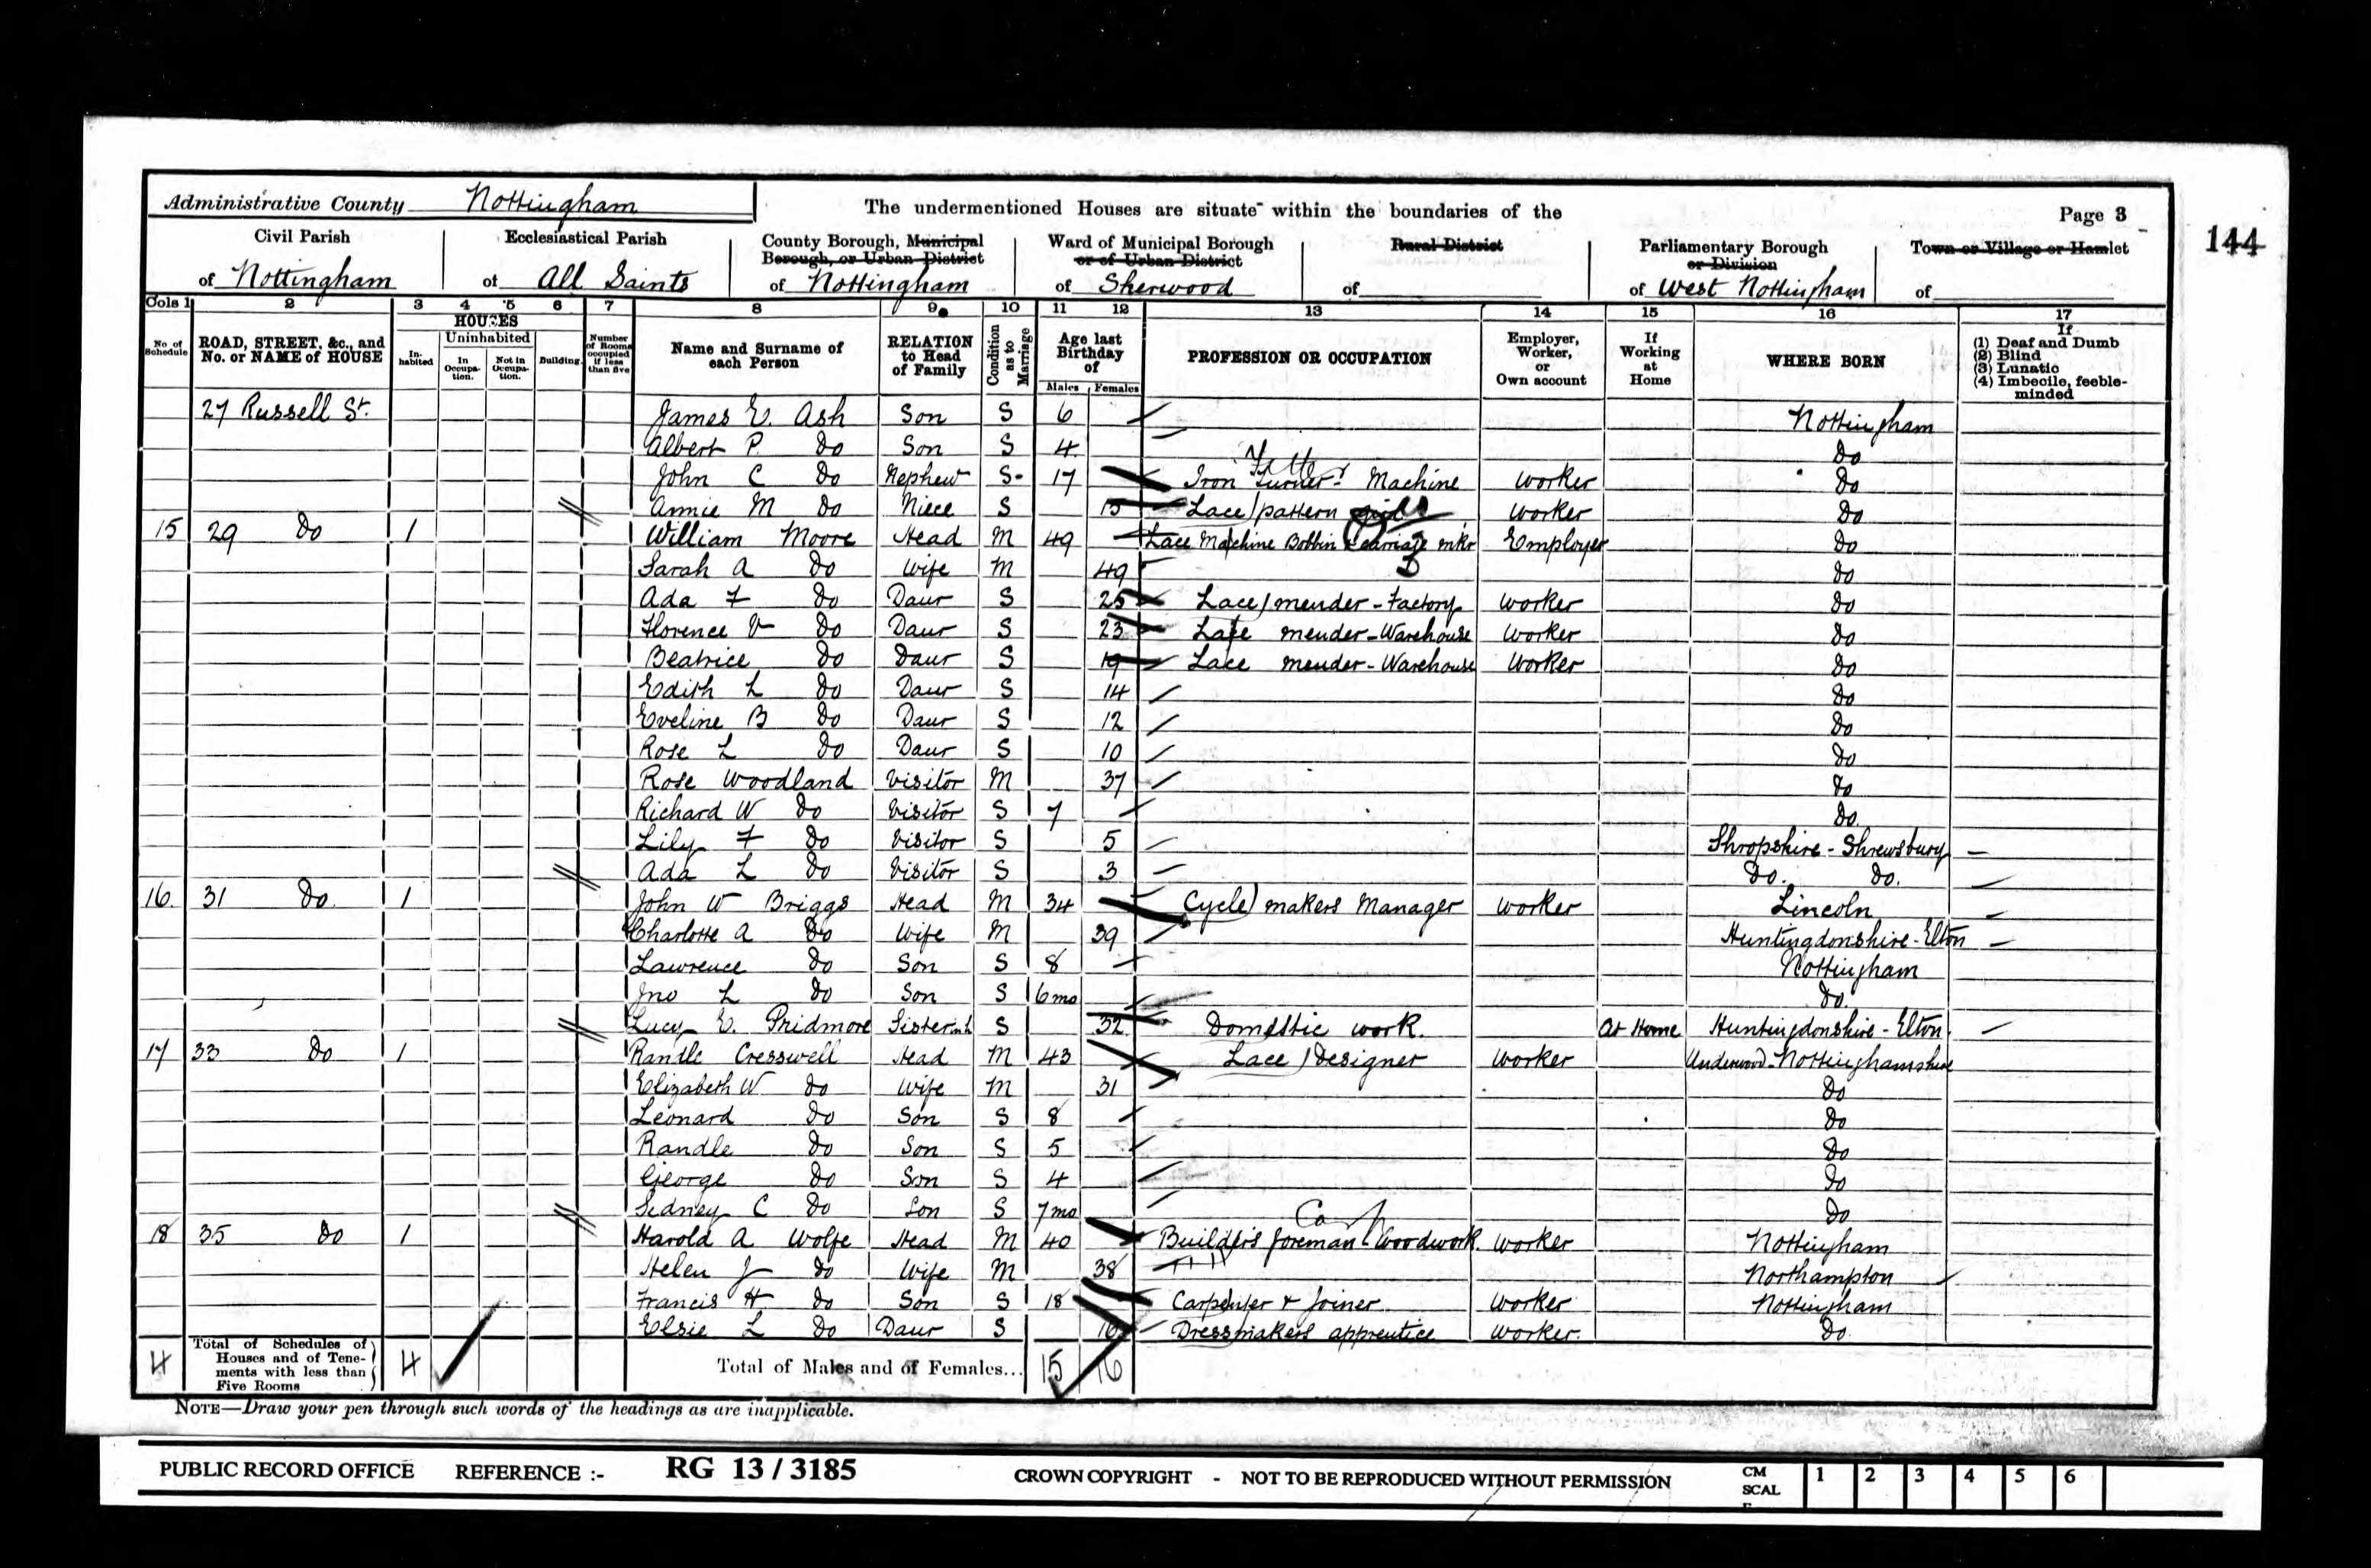 Administrative County Nottingham
The undermentioned Houses are situate within the boundaries of the
Page 3
144
Civil Parish of Nottingham
Ecclesiastical Parish of All Saints
County Borough, Municipal Borough, or Urban District of Nottingham
Ward of Municipal Borough or of Urban District of Sherwood
Rural District of
Parliamentary Borough or Division of West Nottingham
Town or Village or Hamlet of
Cols 1 2 3 4 5 6 7 8 9 10 11 12 13 14 15 16 17
No. of Schedule
ROAD, STREET, &c., and No. or NAME of HOUSE
HOUSES
Inhabited
Uninhabited
In Occupation.
Not in Occupation.
Building.
Number of Rooms occupied if less than five
Name and Surname of each Person
RELATION to Head of Family
Condition as to Marriage
Age last Birthday of
Males Females
PROFESSION OR OCCUPATION
Employer, Worker, or Own account
If Working at Home
WHERE BORN
If
(1) Deaf and Dumb
(2) Blind
(3) Lunatic
(4) Imbecile, feeble-minded
27 Russell St. James E. Ash Son S 6 Nottingham
Albert P. Do Son S 4 Do
Fitter
John C Do Nephew S 17 Iron Turner Machine Worker Do
Annie M Do Niece S 15 Lace pattern girl Worker Do
15 29 Do 1 William Moore Head M 49 Lace Machine Bobbin & carriage mkr Employer Do
Sarah A Do Wife M 49 Do
Ada F Do Daur S 25 Lace mender - Factory Worker Do
Florence V Do Daur S 23 Lace mender - Warehouse Worker Do
Beatrice Do Daur S 19 Lace mender - Warehouse Worker Do
Edith L Do Daur S 14 Do
Eveline B Do Daur S 12 Do
Rose L Do Daur S 10 Do
Rose Woodland Visitor M 37 Do
Richard W Do Visitor S 7 Do
Lily F Do Visitor S 5 Shropshire - Shrewsbury
Ada L Do Visitor S 3 Do. Do.
16 31 Do 1 John W Briggs Head M 34 Cycle makers Manager Worker Lincoln
Charlotte A Do Wife M 39 Huntingdonshire - Elton
Lawrence Do Son S 8 Nottingham
Jno L Do Son S 6 mo Do.
Lucy E. Pridmore Sister in L S 32 Domestic work. At Home Huntingdonshire - Elton
17 33 Do 1 Randle Cresswell Head M 43 Lace Designer Worker Underwood - Nottinghamshire
Elizabeth W Do Wife M 31 Do
Leonard Do Son S 8 Do
Randle Do Son S 5 Do
George Do Son S 4 Do
Sidney C Do Son S 7 mo Do
18 35 Do 1 Harold A Wolfe Head M 40 Builders foreman - Woodwork. Worker Nottingham
Helen J Do Wife M 38 Northampton
Francis H Do Son S 18 Carpenter & Joiner Worker Nottingham
Elsie L Do Daur S 16 Dressmakers apprentice Worker. Do
4 Total of Schedules of Houses and of Tenements with less than Five Rooms 4
Total of Males and of Females... 15 16
NOTE—Draw your pen through such words of the headings as are inapplicable.
PUBLIC RECORD OFFICE REFERENCE :- RG 13 / 3185 CROWN COPYRIGHT - NOT TO BE REPRODUCED WITHOUT PERMISSION CM SCAL 1 2 3 4 5 6